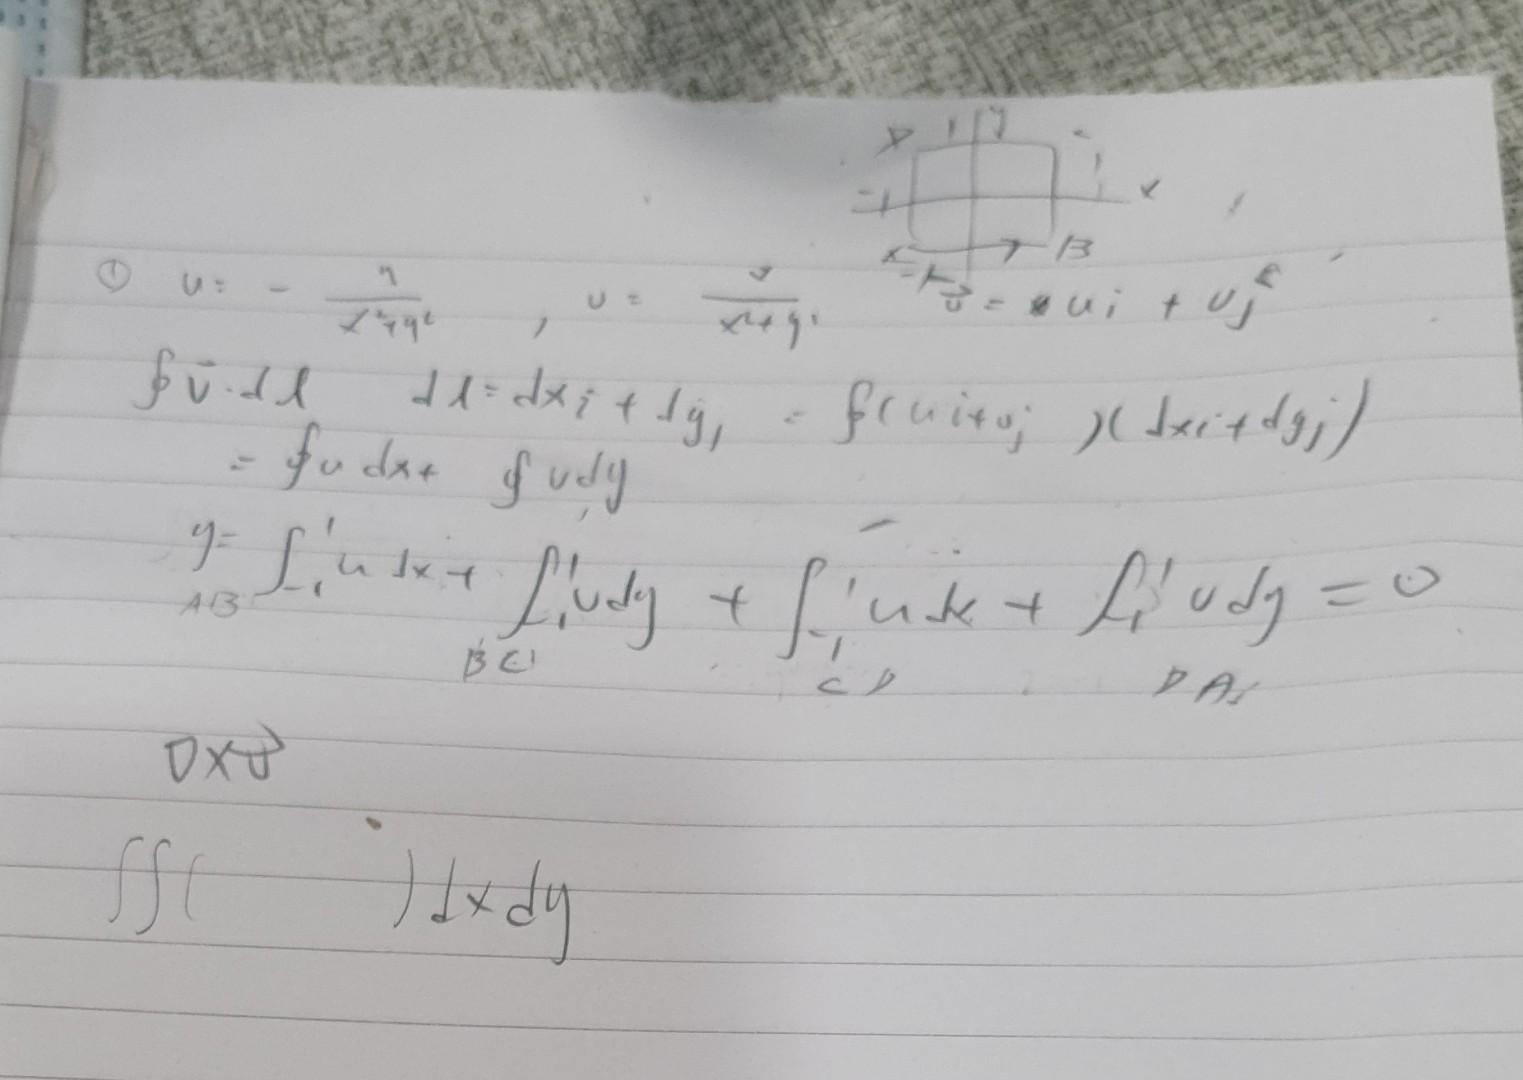 D 1 y
-1 x
-1 B
① u = - y/(x²+y²) , v = /(x²+y²) v⃗ = ui + vj
∮ v⃗·dl dl = dxi + dyj = ∮(ui+vj)(dxi+dyj)
= ∮u dx + ∮vdy
y = ∫₋₁¹ u dx + ∫₋₁¹ vdy + ∫₋₁¹ u dx + ∫₋₁¹ vdy = 0
AB BC CD DA
∇×v⃗
∬( )dxdy